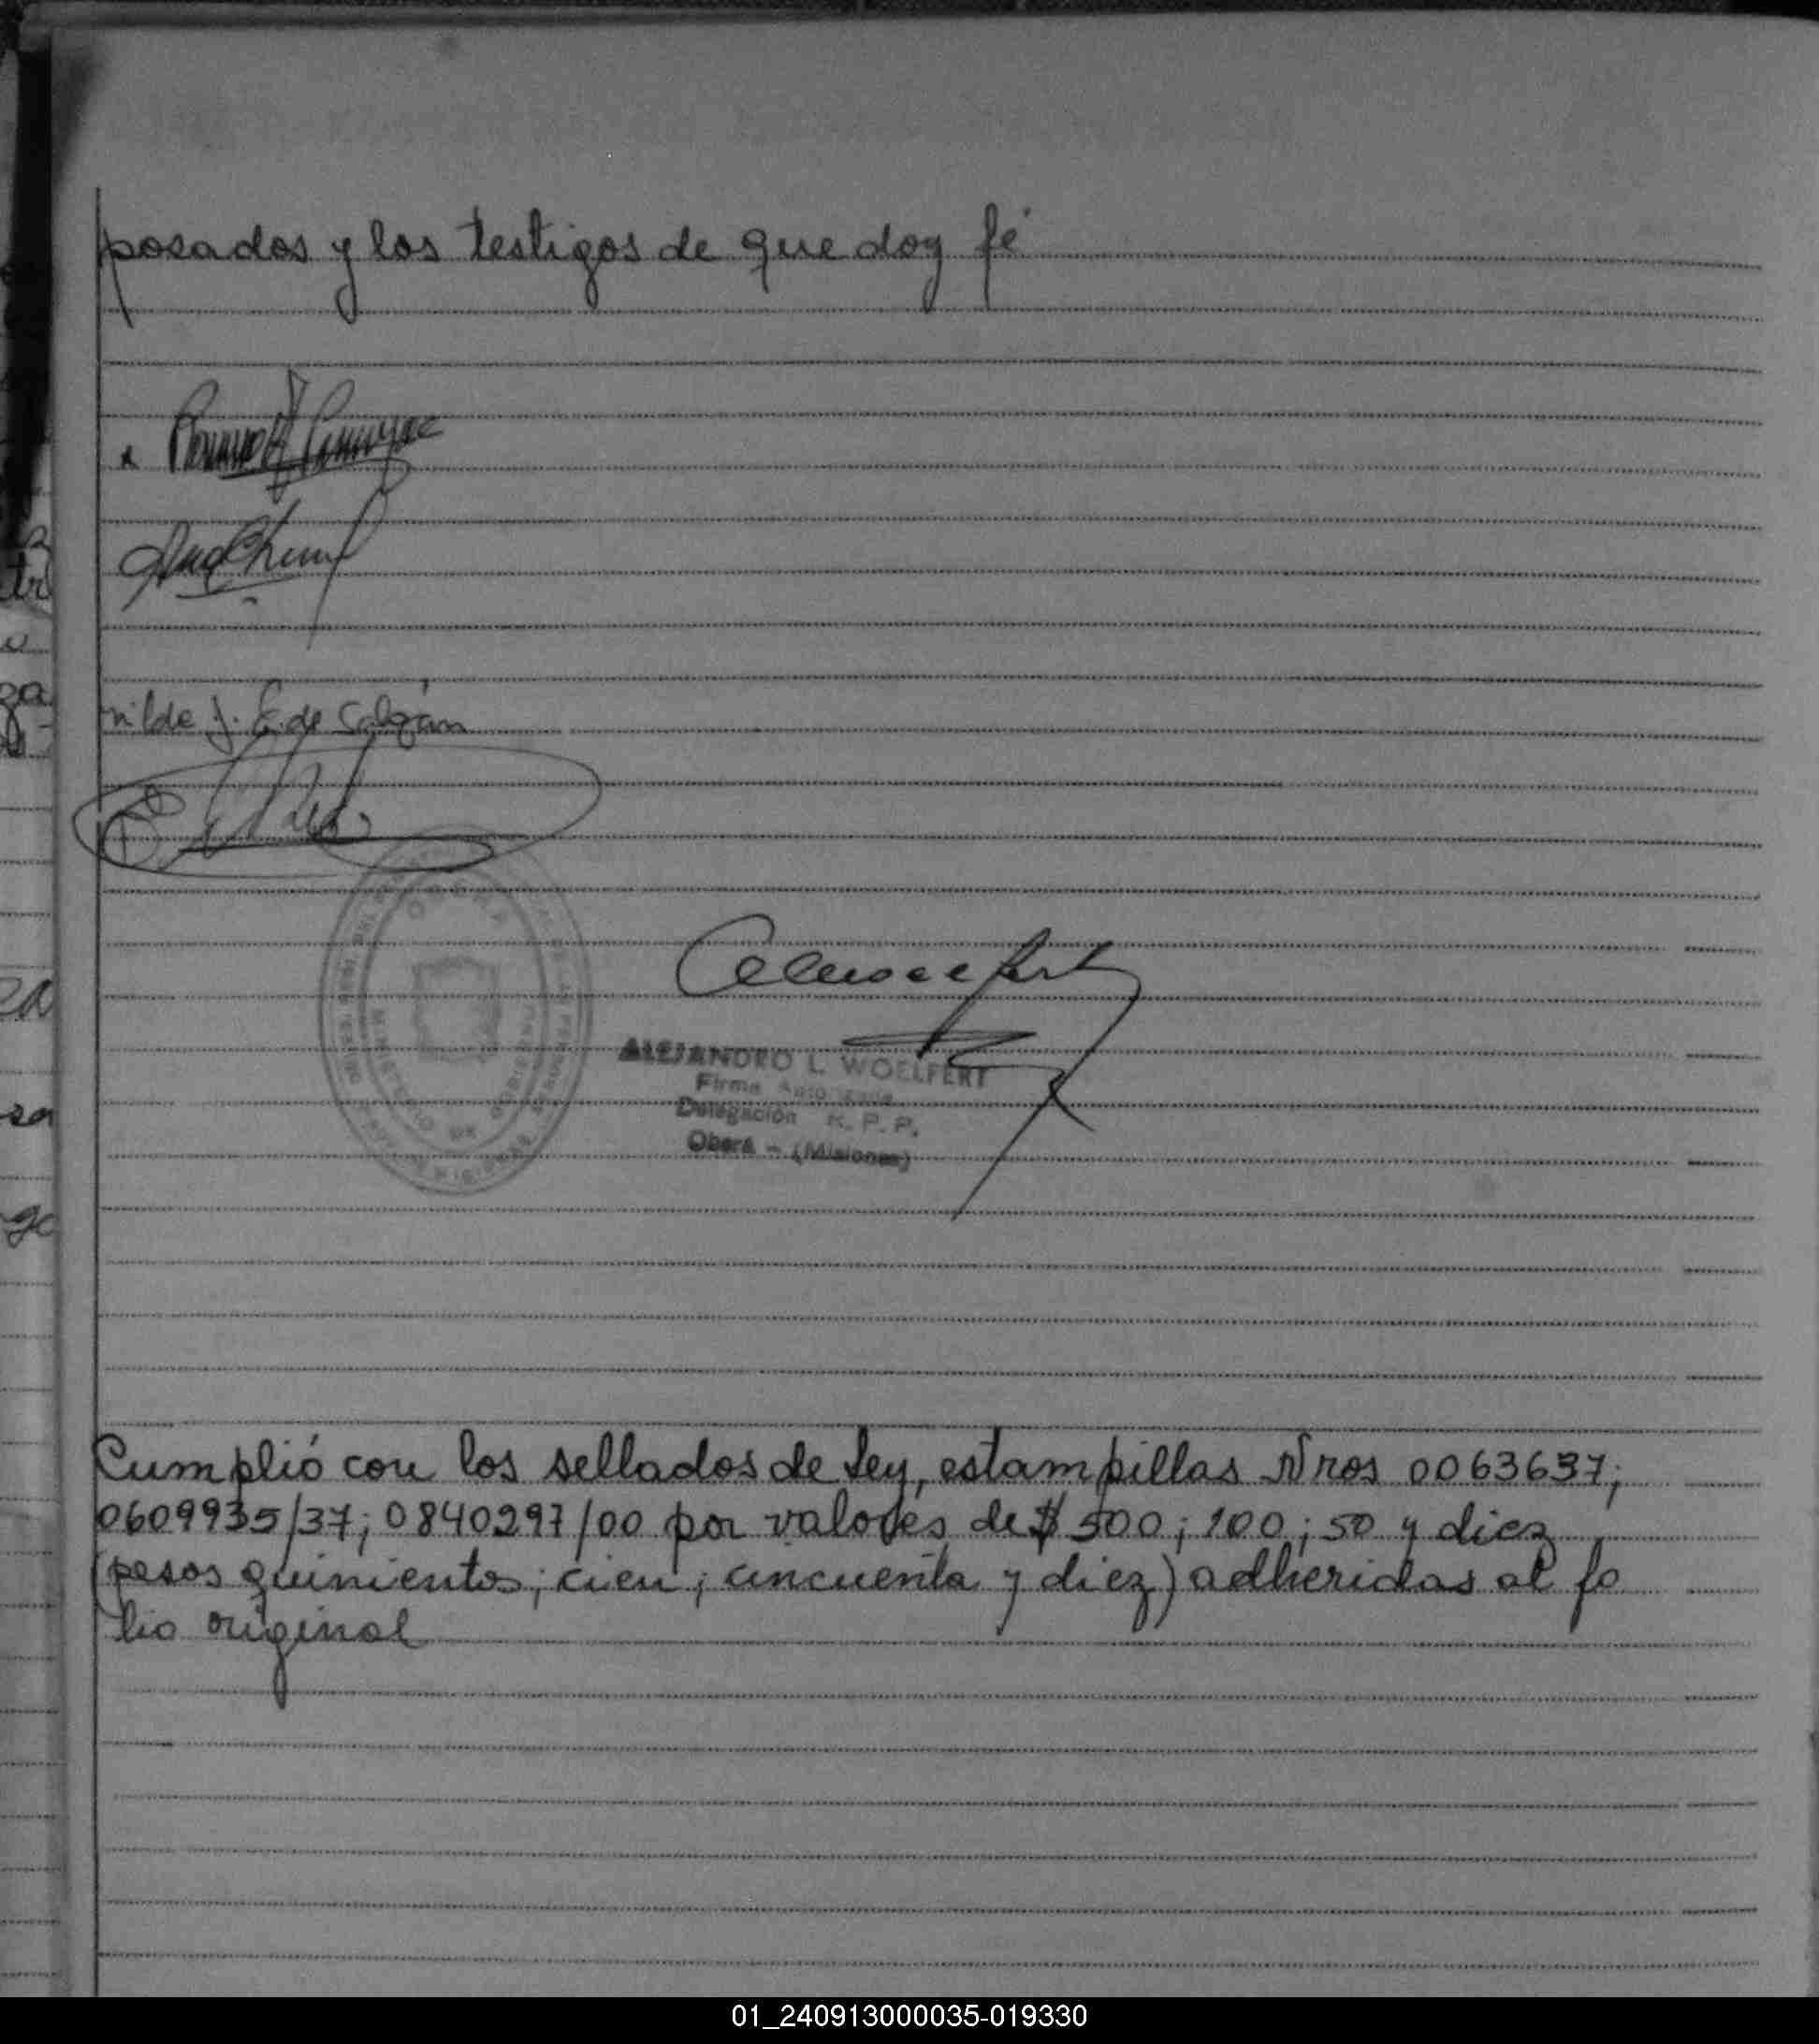 posados y los testigos de que doy fé
nilde J. E. de Galzán
OBERA
MINISTERIO DE GOBIERNO
ALEJANDRO L. WOELFERT
Firma Autorizada
Delegación R. P. P.
Oberá - (Misiones)
Cumplió con los sellados de Ley, estampillas Nros 0063637;
0609935/37; 0840297/00 por valores de $ 500; 100; 50 y diez
(pesos quinientos; cien; cincuenta y diez) adheridas al fo
lio original
01_240913000035-019330